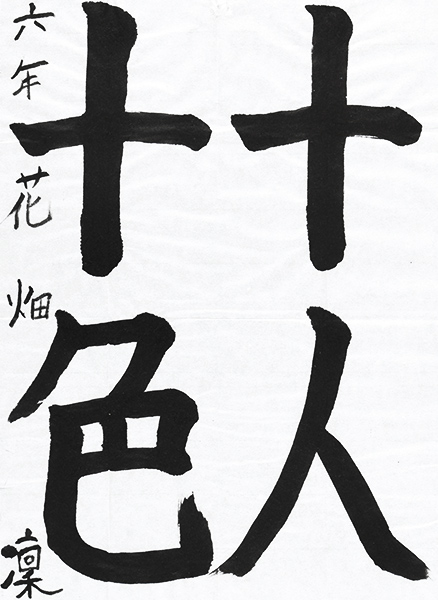 十人
十色
六年 花畑 凜